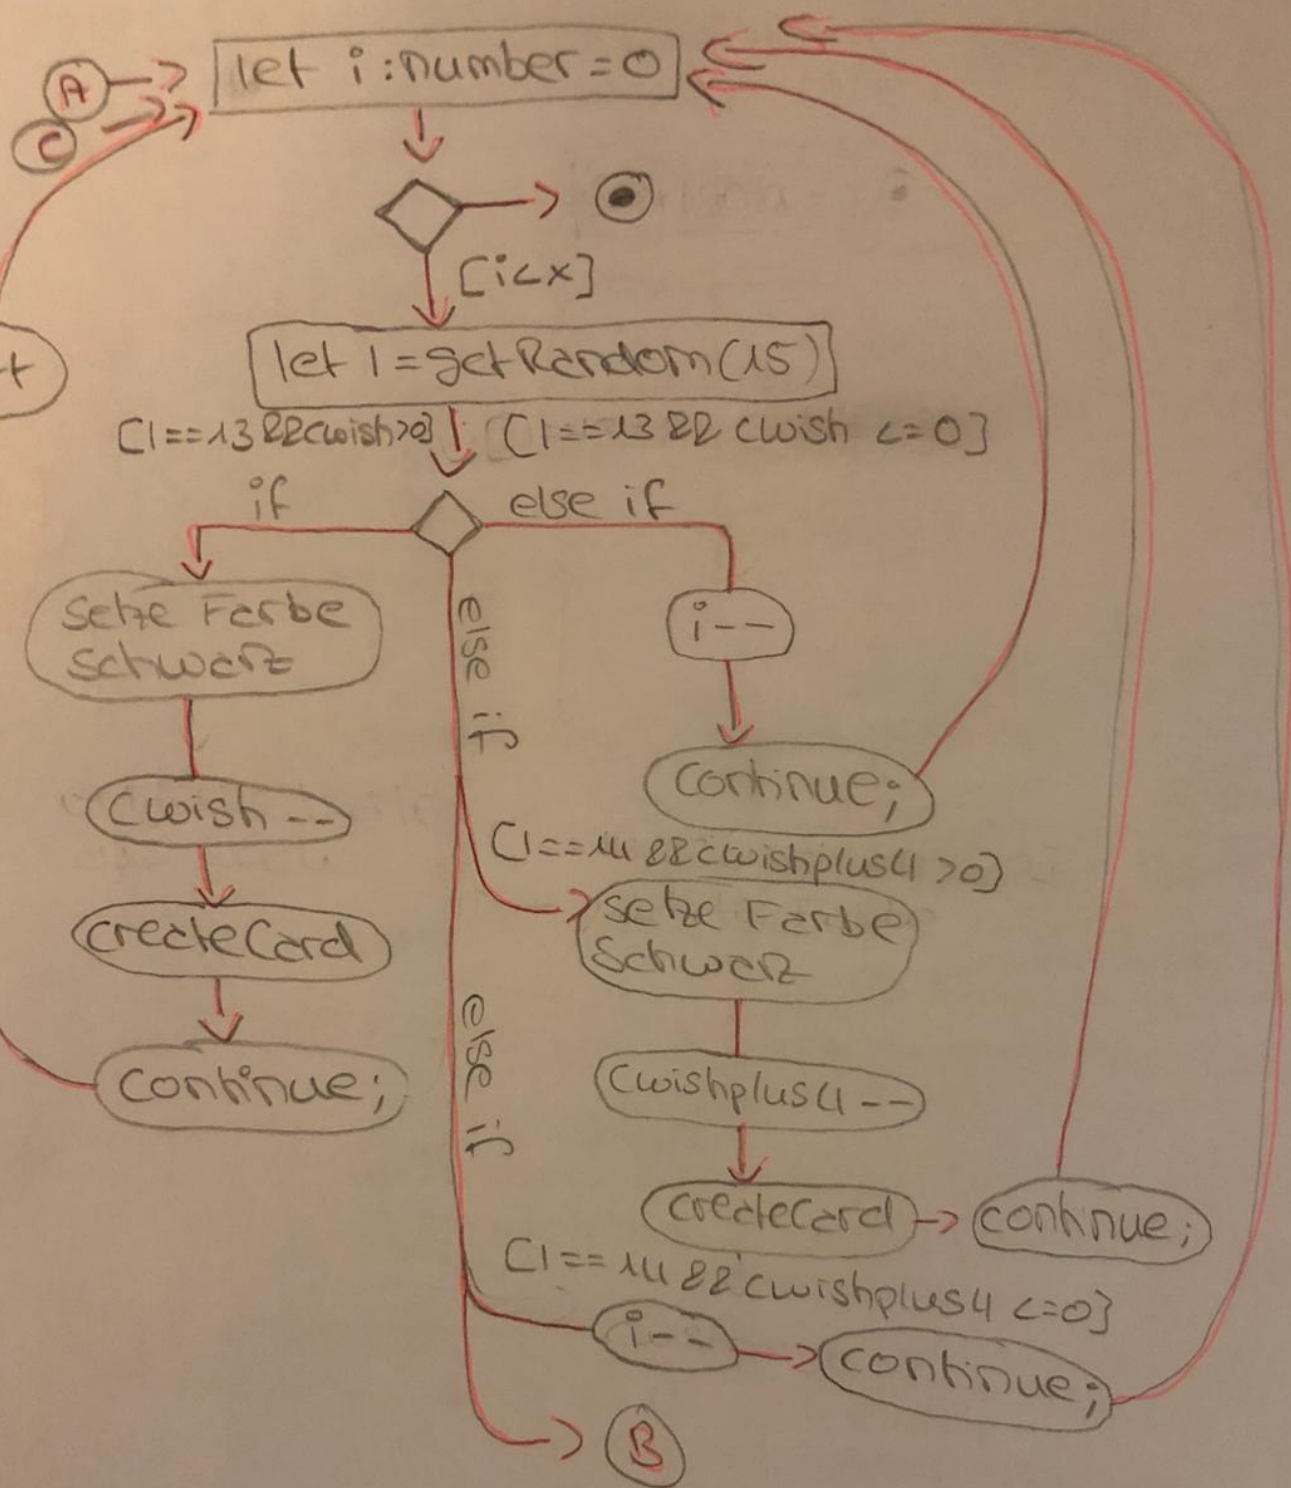 A
let i:number=0
C
[i<x]
let l=getRandom(15)
[l==13 && cwish>0]
[l==13 && cwish <=0]
if
else if
Setze Farbe
Schwarz
else if
i--
continue;
cwish--
[l==14 && cwishplus4 >0]
setze Farbe
Schwarz
createCard
else if
continue;
cwishplus4--
createCard
continue;
[l==14 && cwishplus4 <=0]
i--
continue;
B